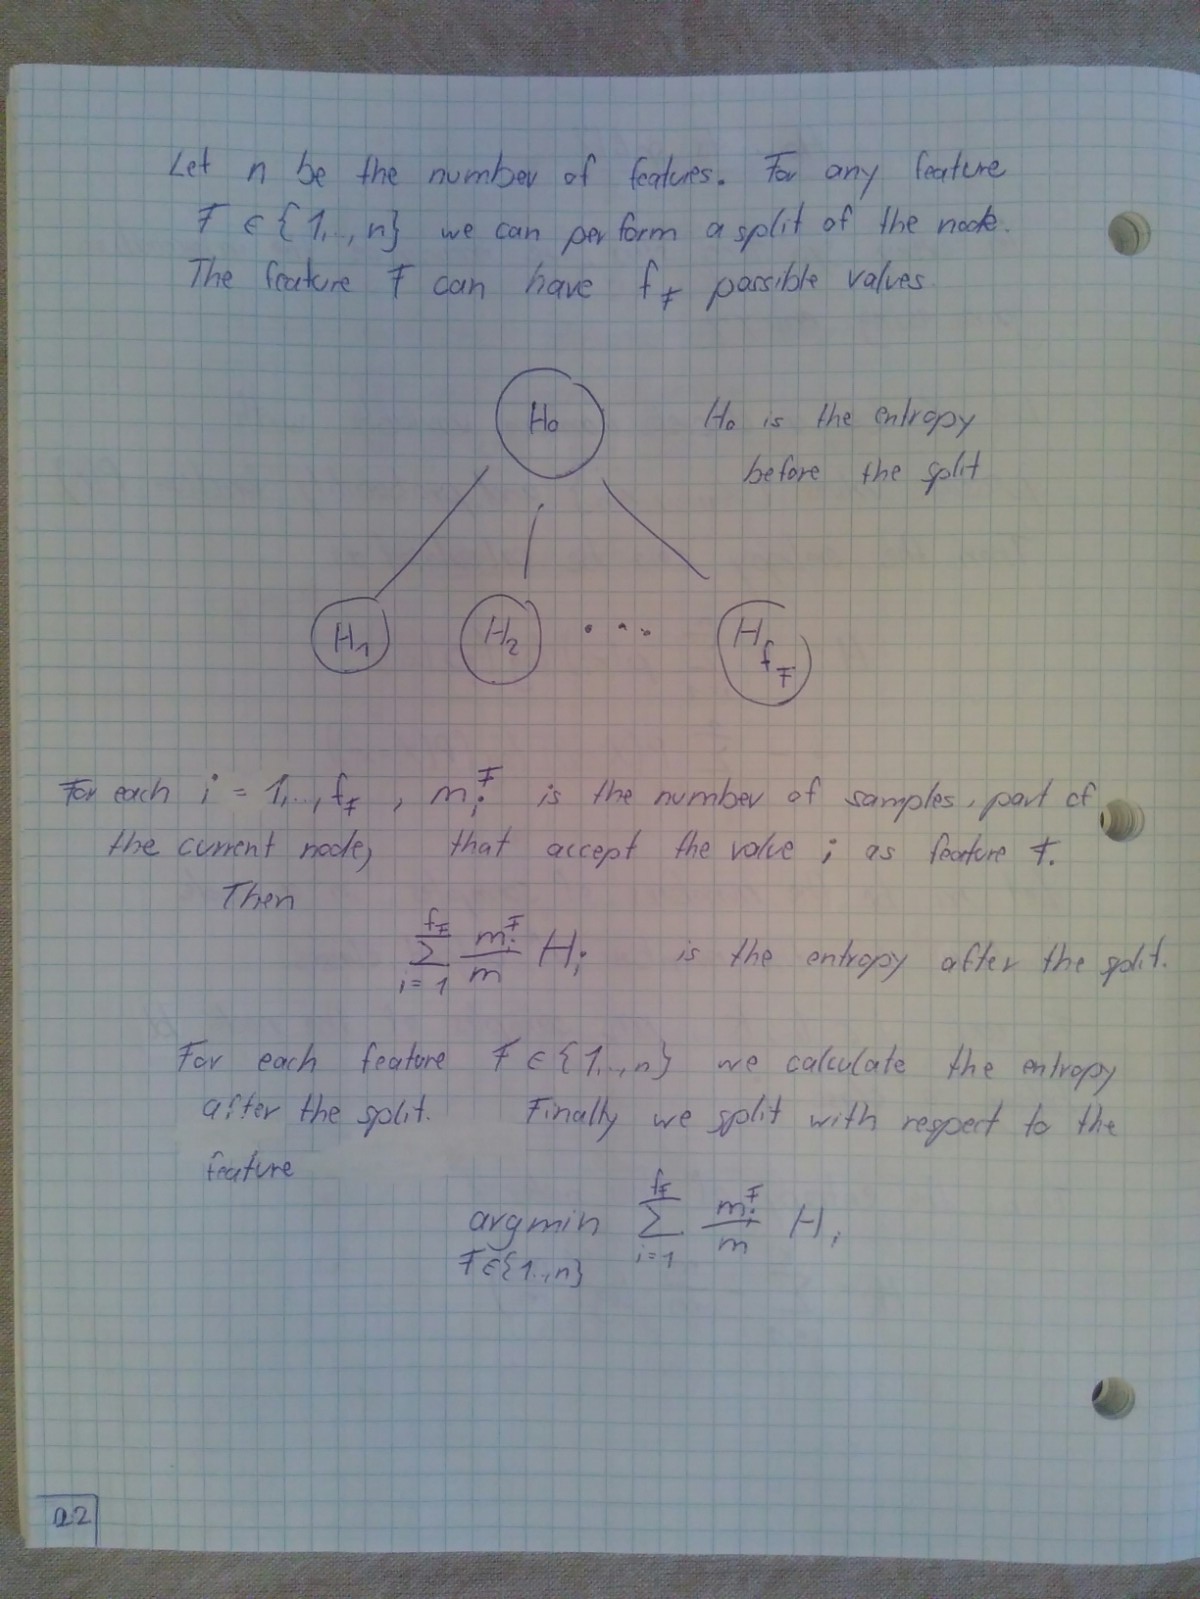 Let n be the number of features. For any feature
F ∈ {1,..,n} we can perform a split of the node.
The feature F can have f_F possible values.
H₀
H₀ is the entropy
before the split
H₁ H₂ ... H_{f_F}
For each i = 1,..,f_F , m_i^F is the number of samples, part of
the current node, that accept the value i as feature F.
Then
∑_{i=1}^{f_F} m_i^F/m H_i is the entropy after the split.
For each feature F ∈ {1,..,n} we calculate the entropy
after the split. Finally we split with respect to the
feature
argmin_{F∈{1..,n}} ∑_{i=1}^{f_F} m_i^F/m H_i
22